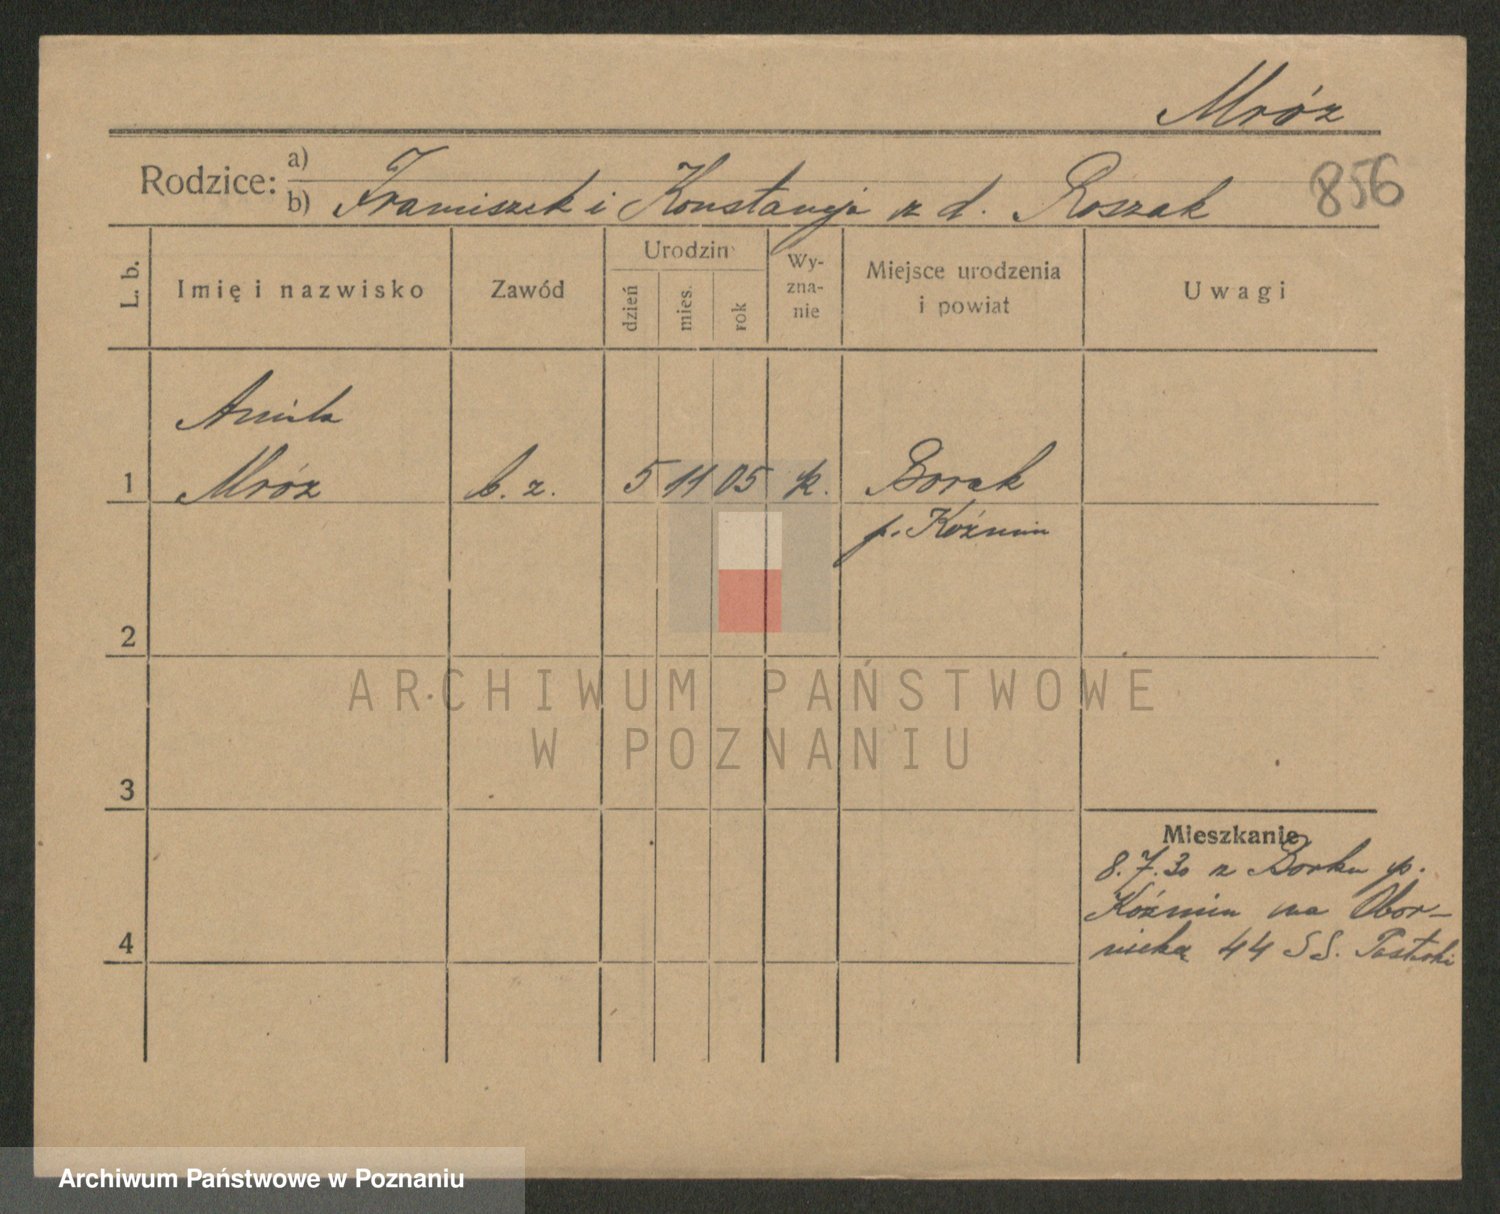 Mróz
Rodzice:
a)
b) Franciszek i Konstancja z d. Roszak
856
L. b.
Imię i nazwisko
Zawód
Urodzin
dzień
mies.
rok
Wy-
zna-
nie
Miejsce urodzenia
i powiat
Uwagi
Aniela
1 Mróz b. z. 5 11 05 k. Borek
p. Koźmin
2
3
4
Mieszkanie
8.7.30 z Borku p.
Koźmin na Obor-
nicką 44 SS.
ARCHIWUM PAŃSTWOWE
W POZNANIU
Archiwum Państwowe w Poznaniu